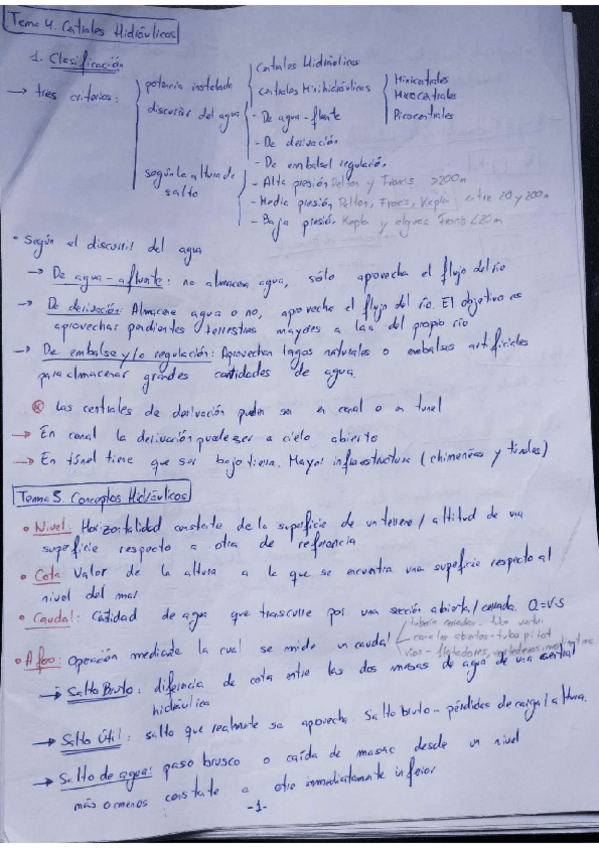 Tema 4. Centrales Hidráulicas
1. Clasificación
→ tres criterios:
potencia instalada
Centrales Hidráulicas
Centrales Minihidráulicas
Minicentrales
Microcentrales
Picocentrales
discurrir del agua
- De agua-fluente
- De derivación
- De embalse/ regulación
según la altura de salto
- Alta presión Pelton y Francis >200m
- Media presión Pelton, Francis, Kaplan entre 20 y 200m
- Baja presión Kaplan y algunas Francis <20m
• Según el discurrir del agua
→ De agua-afluente: no almacena agua, sólo aprovecha el flujo del río
→ De derivación: Almacene agua o no, aprovecha el flujo del río. El objetivo es
aprovechar pendientes terrestres mayores a las del propio río
→ De embalse y/o regulación: Aprovechan lagos naturales o embalses artificiales
para almacenar grandes cantidades de agua.
⊗ Las centrales de derivación pueden ser en canal o en tunel
→ En canal la derivación puede ser a cielo abierto
→ En túnel tiene que ser bajo tierra. Mayor infraestructura (chimeneas y túneles)
Tema 5. Conceptos Hidráulicos
• Nivel: Horizontalidad constante de la superficie de un terreno / altitud de una
superficie respecto a otra de referencia
• Cota: Valor de la altura a la que se encuentra una superficie respecto al
nivel del mar
• Caudal: Cantidad de agua que transcurre por una sección abierta/cerrada. Q=V·S
• Aforo: Operación mediante la cual se mide un caudal
tubería cerradas - tubo venturi
canales abiertos - tubo pitot
ríos - flotadores, vertederos
→ Salto Bruto: diferencia de cota entre las dos masas de agua de una central
hidráulica
→ Salto Útil: salto que realmente se aprovecha Salto bruto - pérdidas de carga/altura.
→ Salto de agua: paso brusco o caída de masas desde un nivel
más o menos constante a otro inmediatamente inferior
-1-